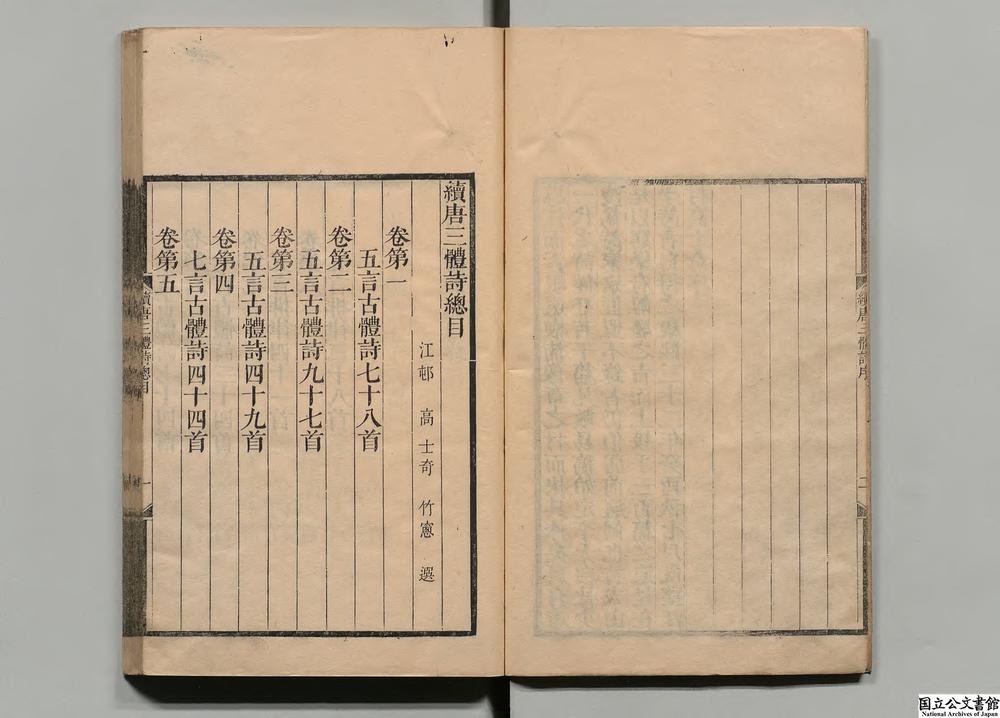 續唐三體詩序
二
續唐三體詩總目
江邨　高士奇　竹窻　選
卷第一
五言古體詩七十八首
卷第二
五言古體詩九十七首
卷第三
五言古體詩四十九首
卷第四
七言古體詩四十四首
卷第五
續唐三體詩總目
一
国立公文書館
National Archives of Japan